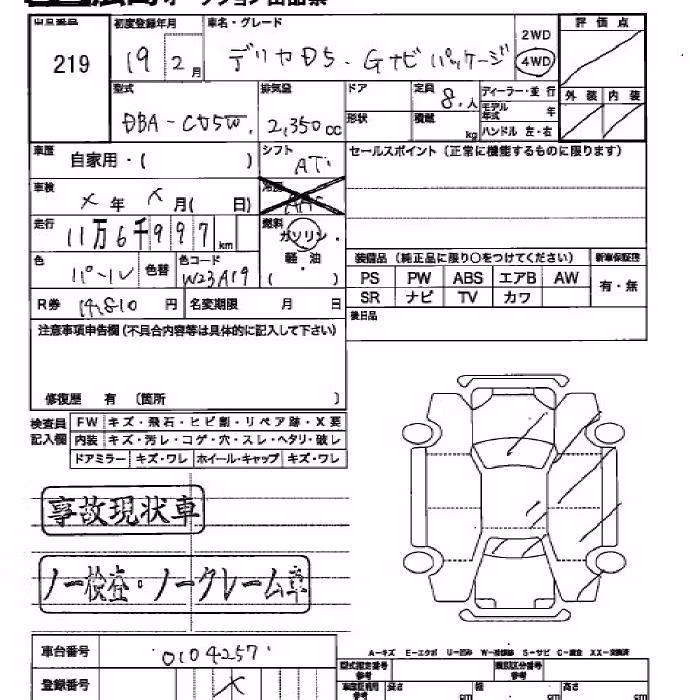 オークション出品票
出品番号
219
初度登録年月
19 2月
車名・グレード
デリカD5・Gナビパッケージ
2WD
4WD
評価点
外装 内装
型式
DBA-CV5W
排気量
2,350cc
ドア
形状
定員
8人
積載
kg
ディーラー・並行
モデル年式 年
ハンドル 左・右
車歴
自家用・( )
シフト
AT
セールスポイント(正常に機能するものに限ります)
車検
×年×月( 日)
冷房
AAC
走行
11万6千997km
燃料
ガソリン・
軽・油
( )
色
パール
色替
色コード
W23A19
装備品(純正品に限り○をつけてください)
新車保証書
PS PW ABS エアB AW
有・無
SR ナビ TV カワ
R券
円
名変期限 月 日
後日品
注意事項申告欄(不具合内容等は具体的に記入して下さい)
修復歴 有 〔箇所 〕
検査員記入欄
FW キズ・飛石・ヒビ割・リペア跡・X要
内装 キズ・汚レ・コゲ・穴・スレ・ヘタリ・破レ
ドアミラー キズ・ワレ ホイール・キャップ キズ・ワレ
事故現状車
ノー検査・ノークレーム車
車台番号
0104257
登録番号
×
A-キズ E-エクボ U-凹み W-補修跡 S-サビ C-腐食 XX-交換済
型式指定番号
参考
類別区分番号
参考
長さ cm 幅 cm 高さ cm